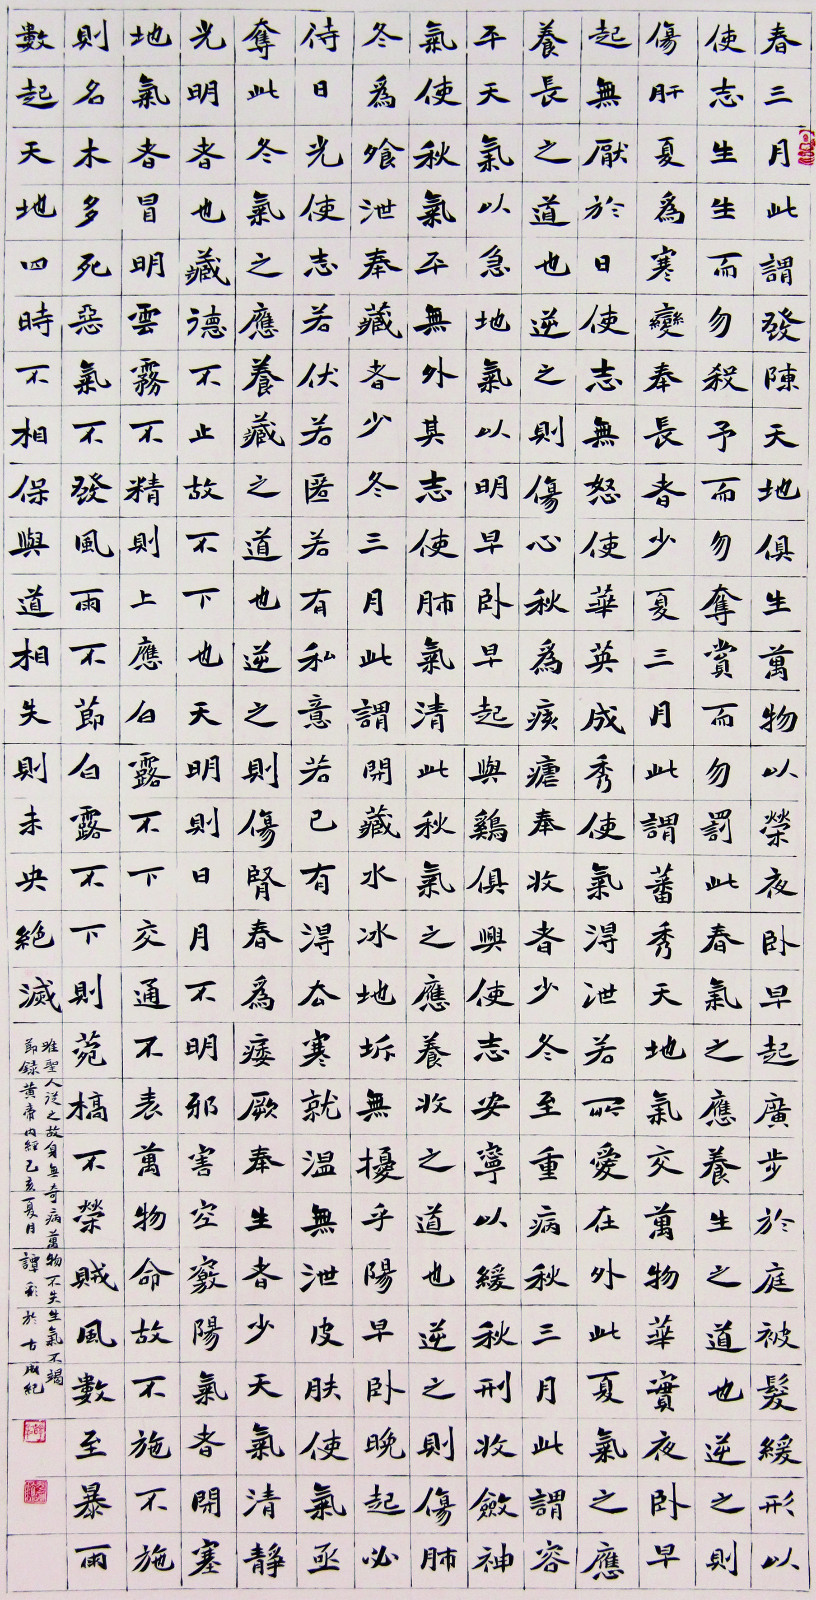 春三月此謂發陳天地俱生萬物以榮夜卧早起廣步於庭被髮緩形以
使志生生而勿殺予而勿奪賞而勿罰此春氣之應養生之道也逆之則
傷肝夏爲寒變奉長者少夏三月此謂蕃秀天地氣交萬物華實夜卧早
起無厭於日使志無怒使華英成秀使氣得泄若所愛在外此夏氣之應
養長之道也逆之則傷心秋爲痎瘧奉收者少冬至重病秋三月此謂容
平天氣以急地氣以明早卧早起與鷄俱興使志安寧以緩秋刑收斂神
氣使秋氣平無外其志使肺氣清此秋氣之應養收之道也逆之則傷肺
冬爲飧泄奉藏者少冬三月此謂閉藏水冰地坼無擾乎陽早卧晚起必
待日光使志若伏若匿若有私意若已有得去寒就温無泄皮肤使氣亟
奪此冬氣之應養藏之道也逆之則傷腎春爲痿厥奉生者少天氣清靜
光明者也藏德不止故不下也天明則日月不明邪害空竅陽氣者閉塞
地氣者冒明雲霧不精則上應白露不下交通不表萬物命故不施不施
則名木多死惡氣不發風雨不節白露不下則菀槁不榮賊風數至暴雨
數起天地四時不相保與道相失則未央絕滅
唯聖人從之故身無奇病萬物不失生氣不竭
節録黄帝内經己亥夏月譚於古成紀